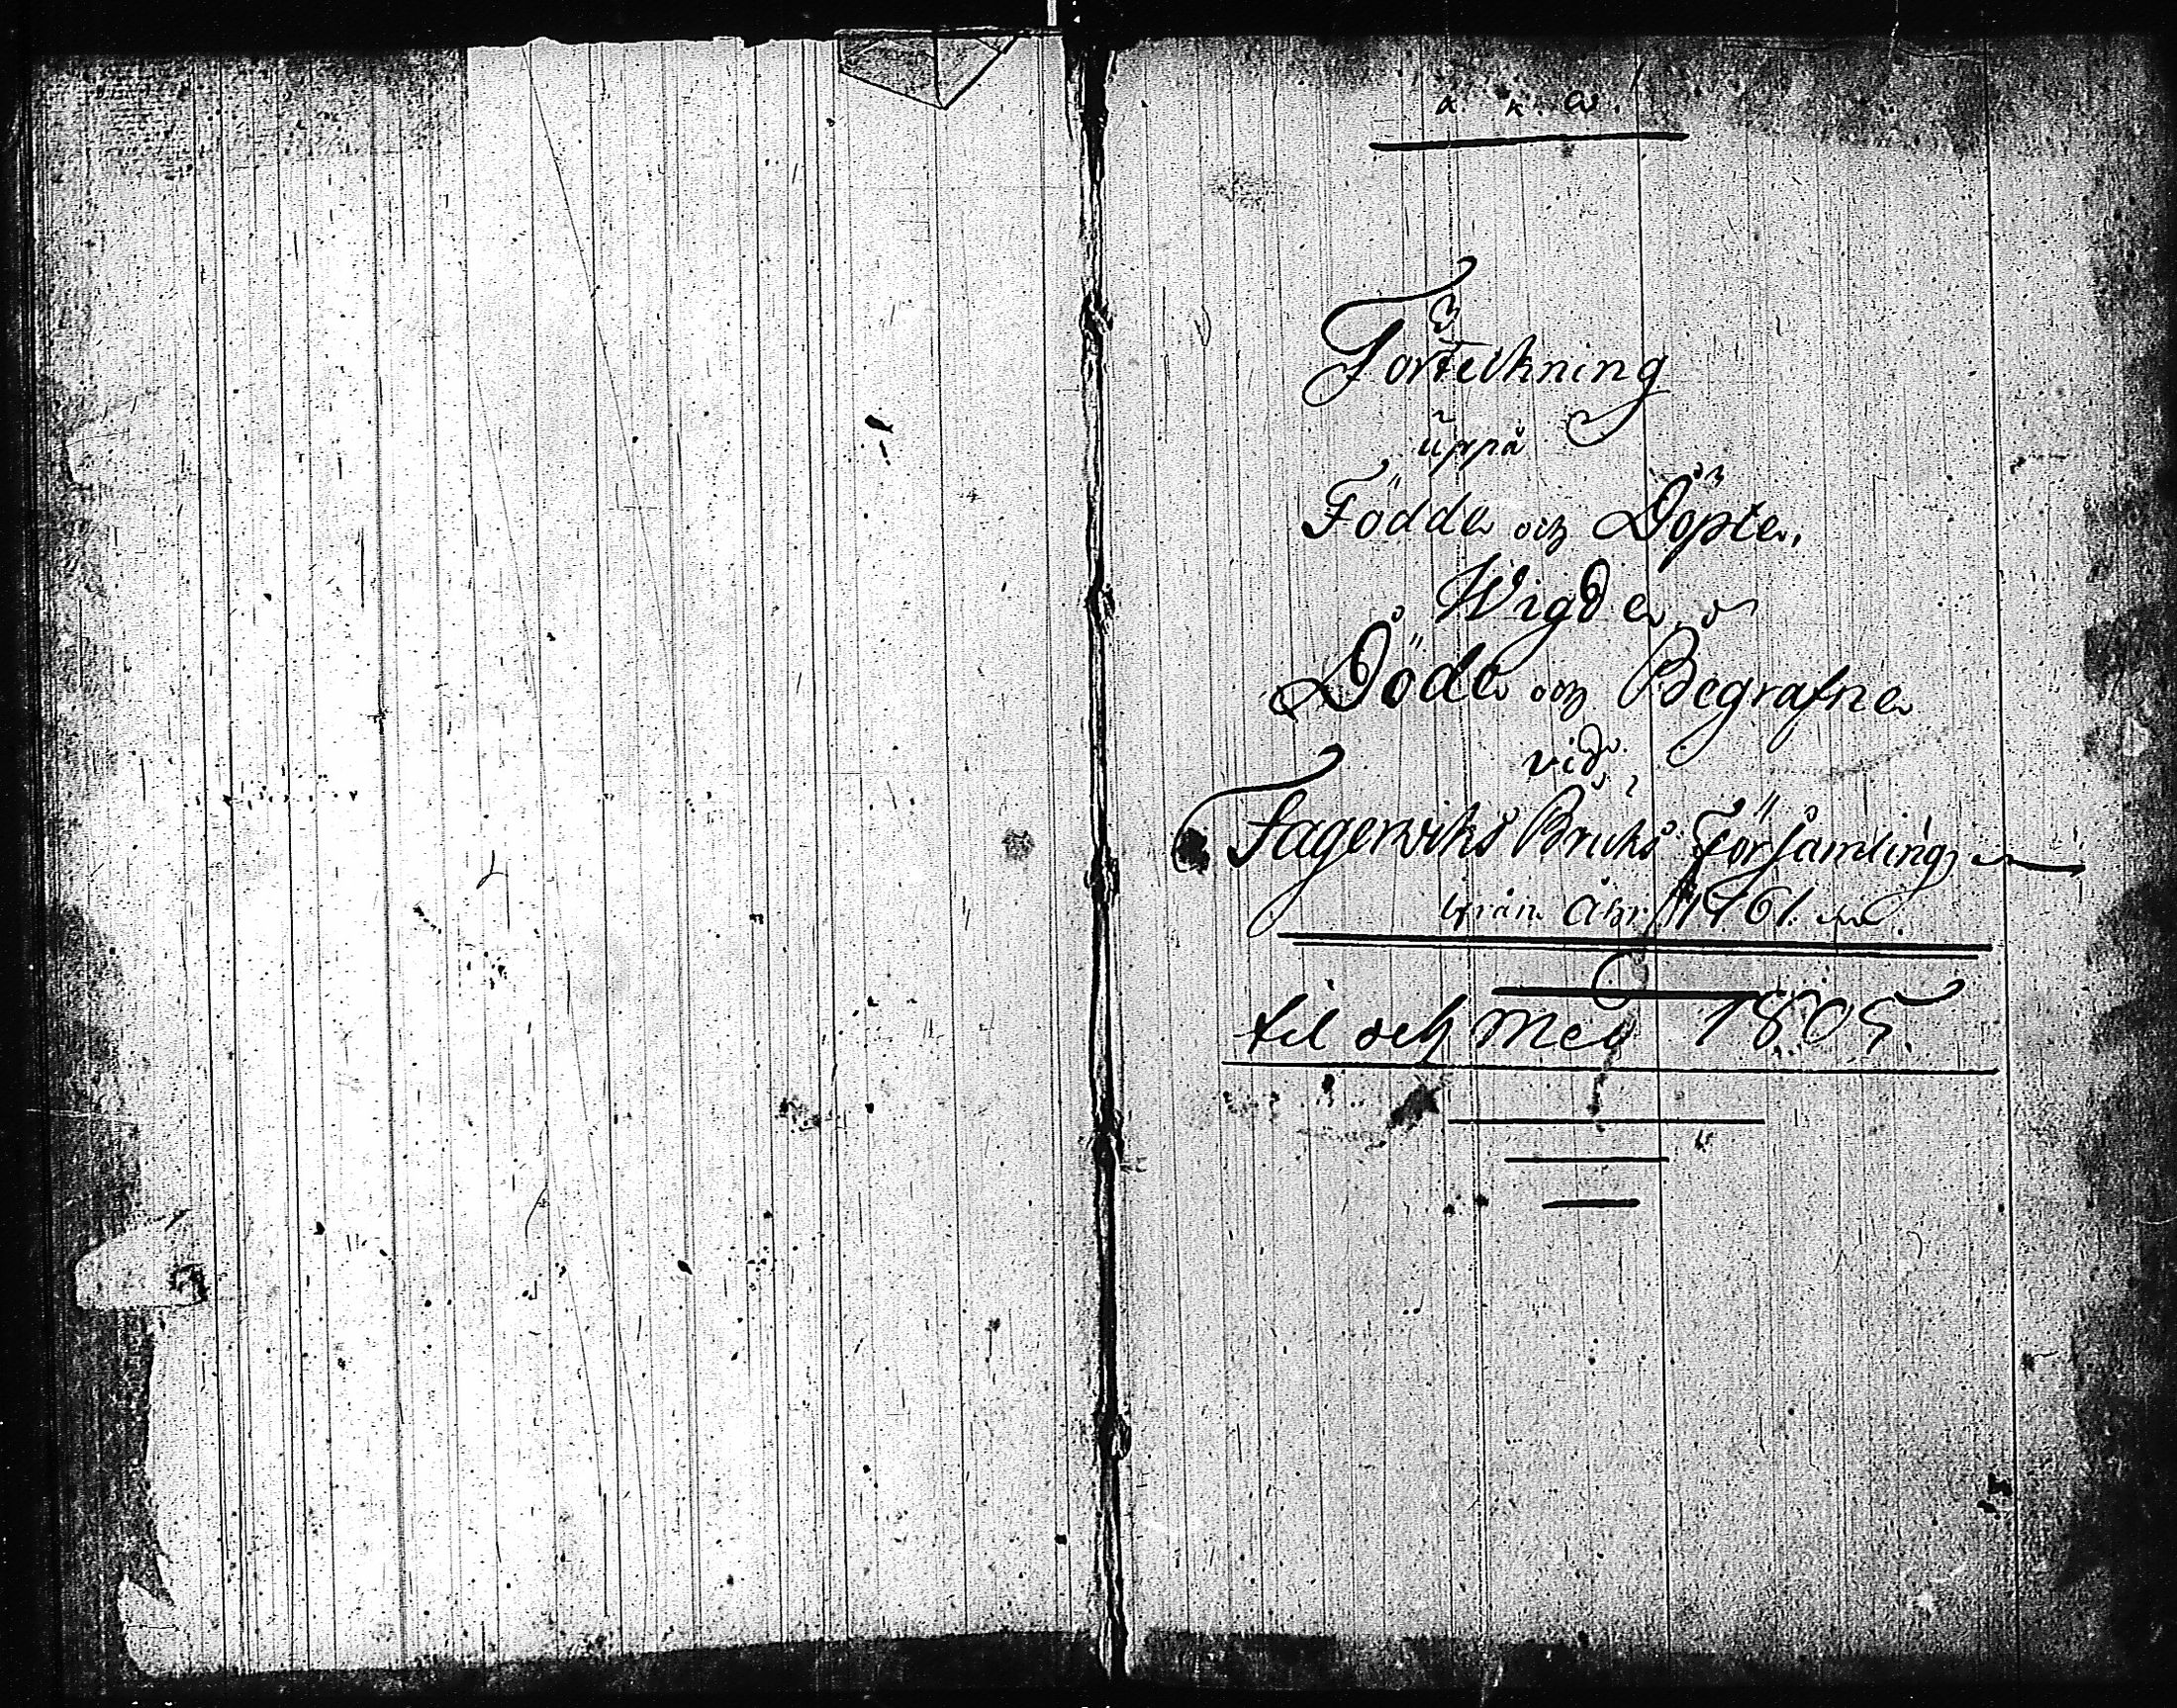 Förteckning
uppå
Födde och Döpte,
Wigde
Döde och Begrafne
vid
Fagerwiks Bruks Församling
ifrån Åhr 1761.
til och med 1805.